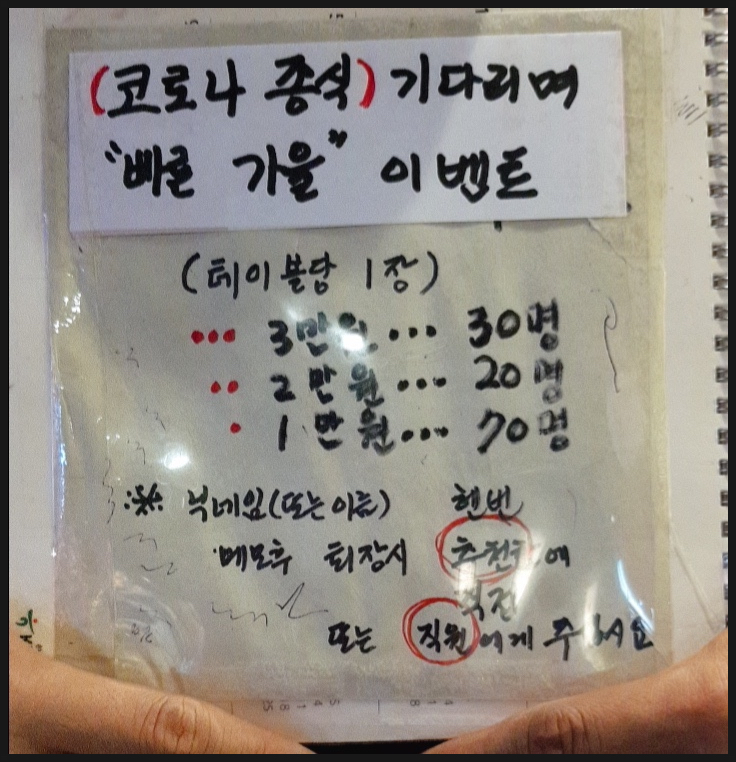 (코로나 종식) 기다리며
"빠른 가을" 이벤트
(테이블당 1장)
••• 3만원 ••• 30명
•• 2만원 ••• 20명
• 1만원 ••• 70명
※ 닉네임(또는이름) 핸번
메모후 퇴장시 에
또는 직원에게 주세요